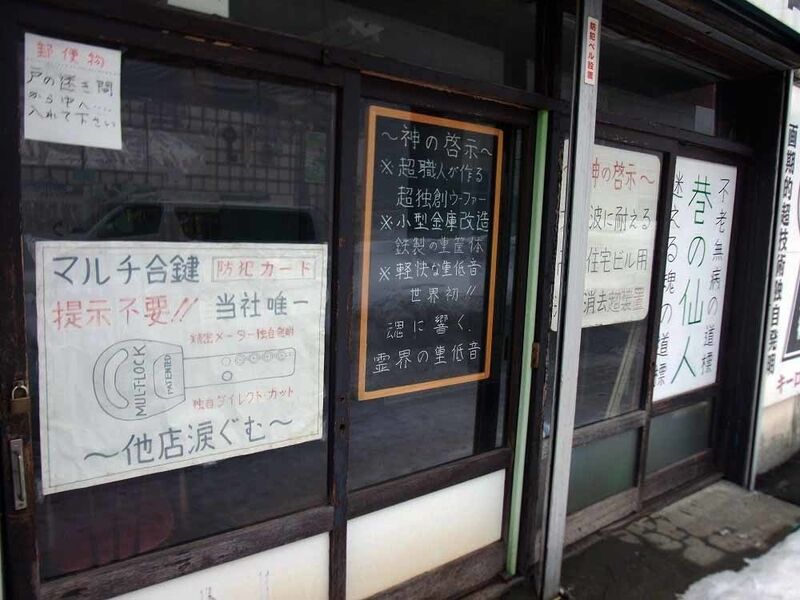 郵便物
戸の透き間
から中へ....
入れて下さい
マルチ合鍵 防犯カード
提示不要!! 当社唯一
精密メーター独自発明
MUL-T-LOCK
PATENTED
独自ダイレクトカット
〜他店涙ぐむ〜
〜神の啓示〜
※超職人が作る
超独創ウーファー
※小型金庫改造
鉄製の重筐体
※軽快な重低音
世界初!!
魂に響く
霊界の重低音
防犯ベル設置
神の啓示〜
波に耐える
住宅ビル用
消去超装置
不老無病の道標
巷の仙人
迷える魂の道標
画期的超技術独自発明